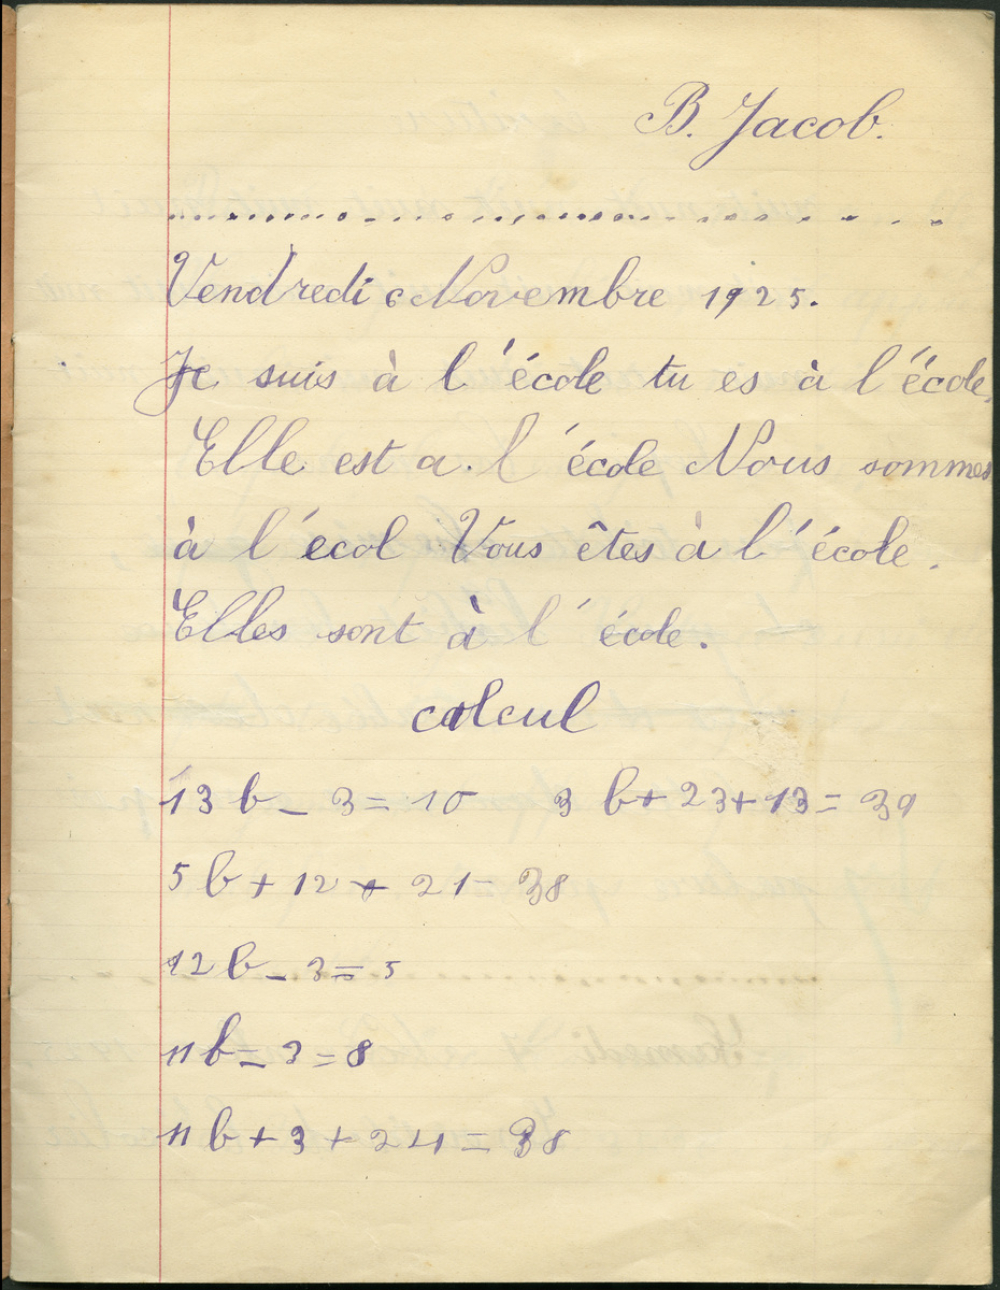 B. Jacob.
Vendredi 6 Novembre 1925.
Je suis à l'école tu es à l'école.
Elle est a l'école Nous sommes
à l'écol Vous êtes à l'école.
Elles sont à l'école.
calcul
13 b - 3 = 10 3 b + 23 + 13 = 39
5 b + 12 + 21 = 38
12 b - 3 = 5
11 b - 3 = 8
11 b + 3 + 24 = 38